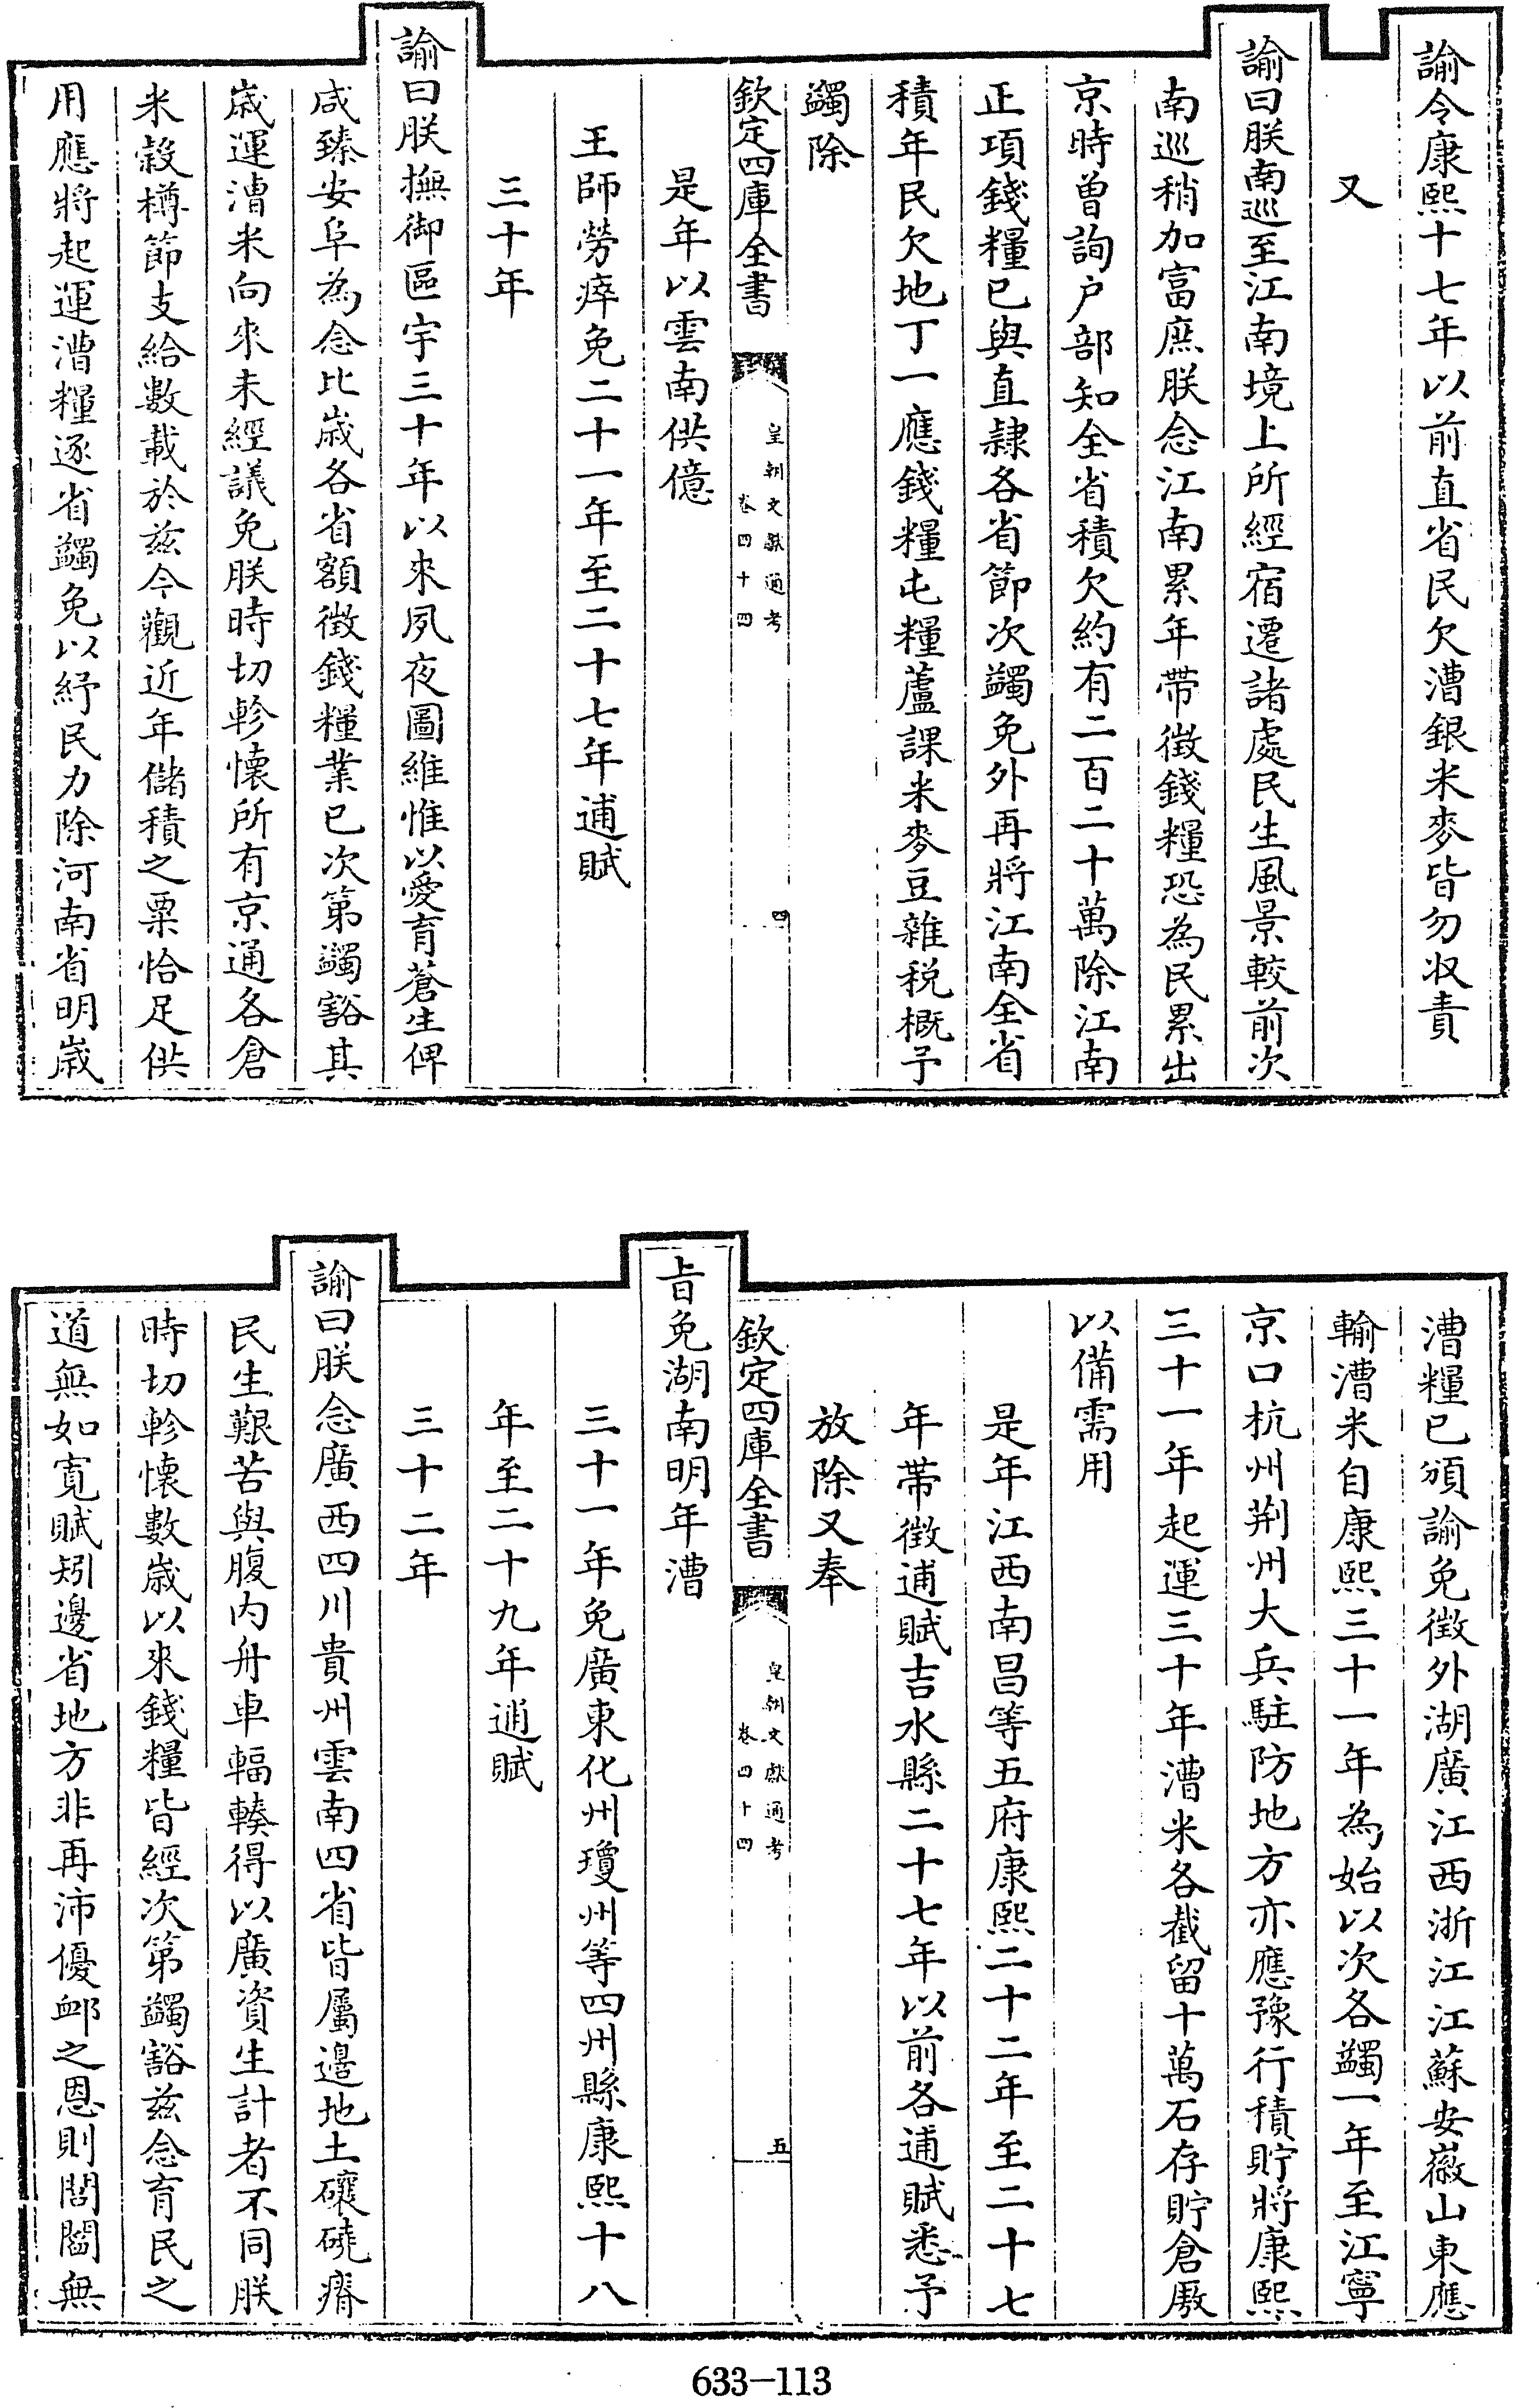 諭令康熙十七年以前直省民欠漕銀米麥皆勿收責
又
諭曰朕南巡至江南境上所經宿遷諸處民生風景較前次
南巡稍加富庶朕念江南累年帶徵錢糧恐為民累出
京時曾詢户部知全省積欠約有二百二十萬除江南
正項錢糧已與直隸各省節次蠲免外再將江南全省
積年民欠地丁一應錢糧屯糧蘆課米麥豆雜税概予
蠲除
欽定四庫全書
皇朝文獻通考
卷四十四
四
是年以雲南供億
王師勞瘁免二十一年至二十七年逋賦
三十年
諭曰朕撫御區宇三十年以來夙夜圖維惟以愛育蒼生俾
咸臻安阜為念比歲各省額徵錢糧業已次第蠲豁其
歲運漕米向來未經議免朕時切軫懷所有京通各倉
米穀樽節支給數載於兹今觀近年儲積之粟恰足供
用應將起運漕糧逐省蠲免以紓民力除河南省明歲
漕糧已頒諭免徵外湖廣江西浙江江蘇安徽山東應
輸漕米自康熙三十一年為始以次各蠲一年至江寧
京口杭州荆州大兵駐防地方亦應豫行積貯將康熙
三十一年起運三十年漕米各截留十萬石存貯倉厫
以備需用
是年江西南昌等五府康熙二十二年至二十七
年帶徵逋賦吉水縣二十七年以前各逋賦悉予
放除又奉
欽定四庫全書
皇朝文獻通考
卷四十四
五
旨免湖南明年漕
三十一年免廣東化州瓊州等四州縣康熙十八
年至二十九年逋賦
三十二年
諭曰朕念廣西四川貴州雲南四省皆屬邊地土礦磽瘠
民生艱苦與腹内舟車輻輳得以廣資生計者不同朕
時切軫懷數歲以來錢糧皆經次第蠲豁兹念育民之
道無如寛賦矧邊省地方非再沛優卹之恩則閭閻無
633-113